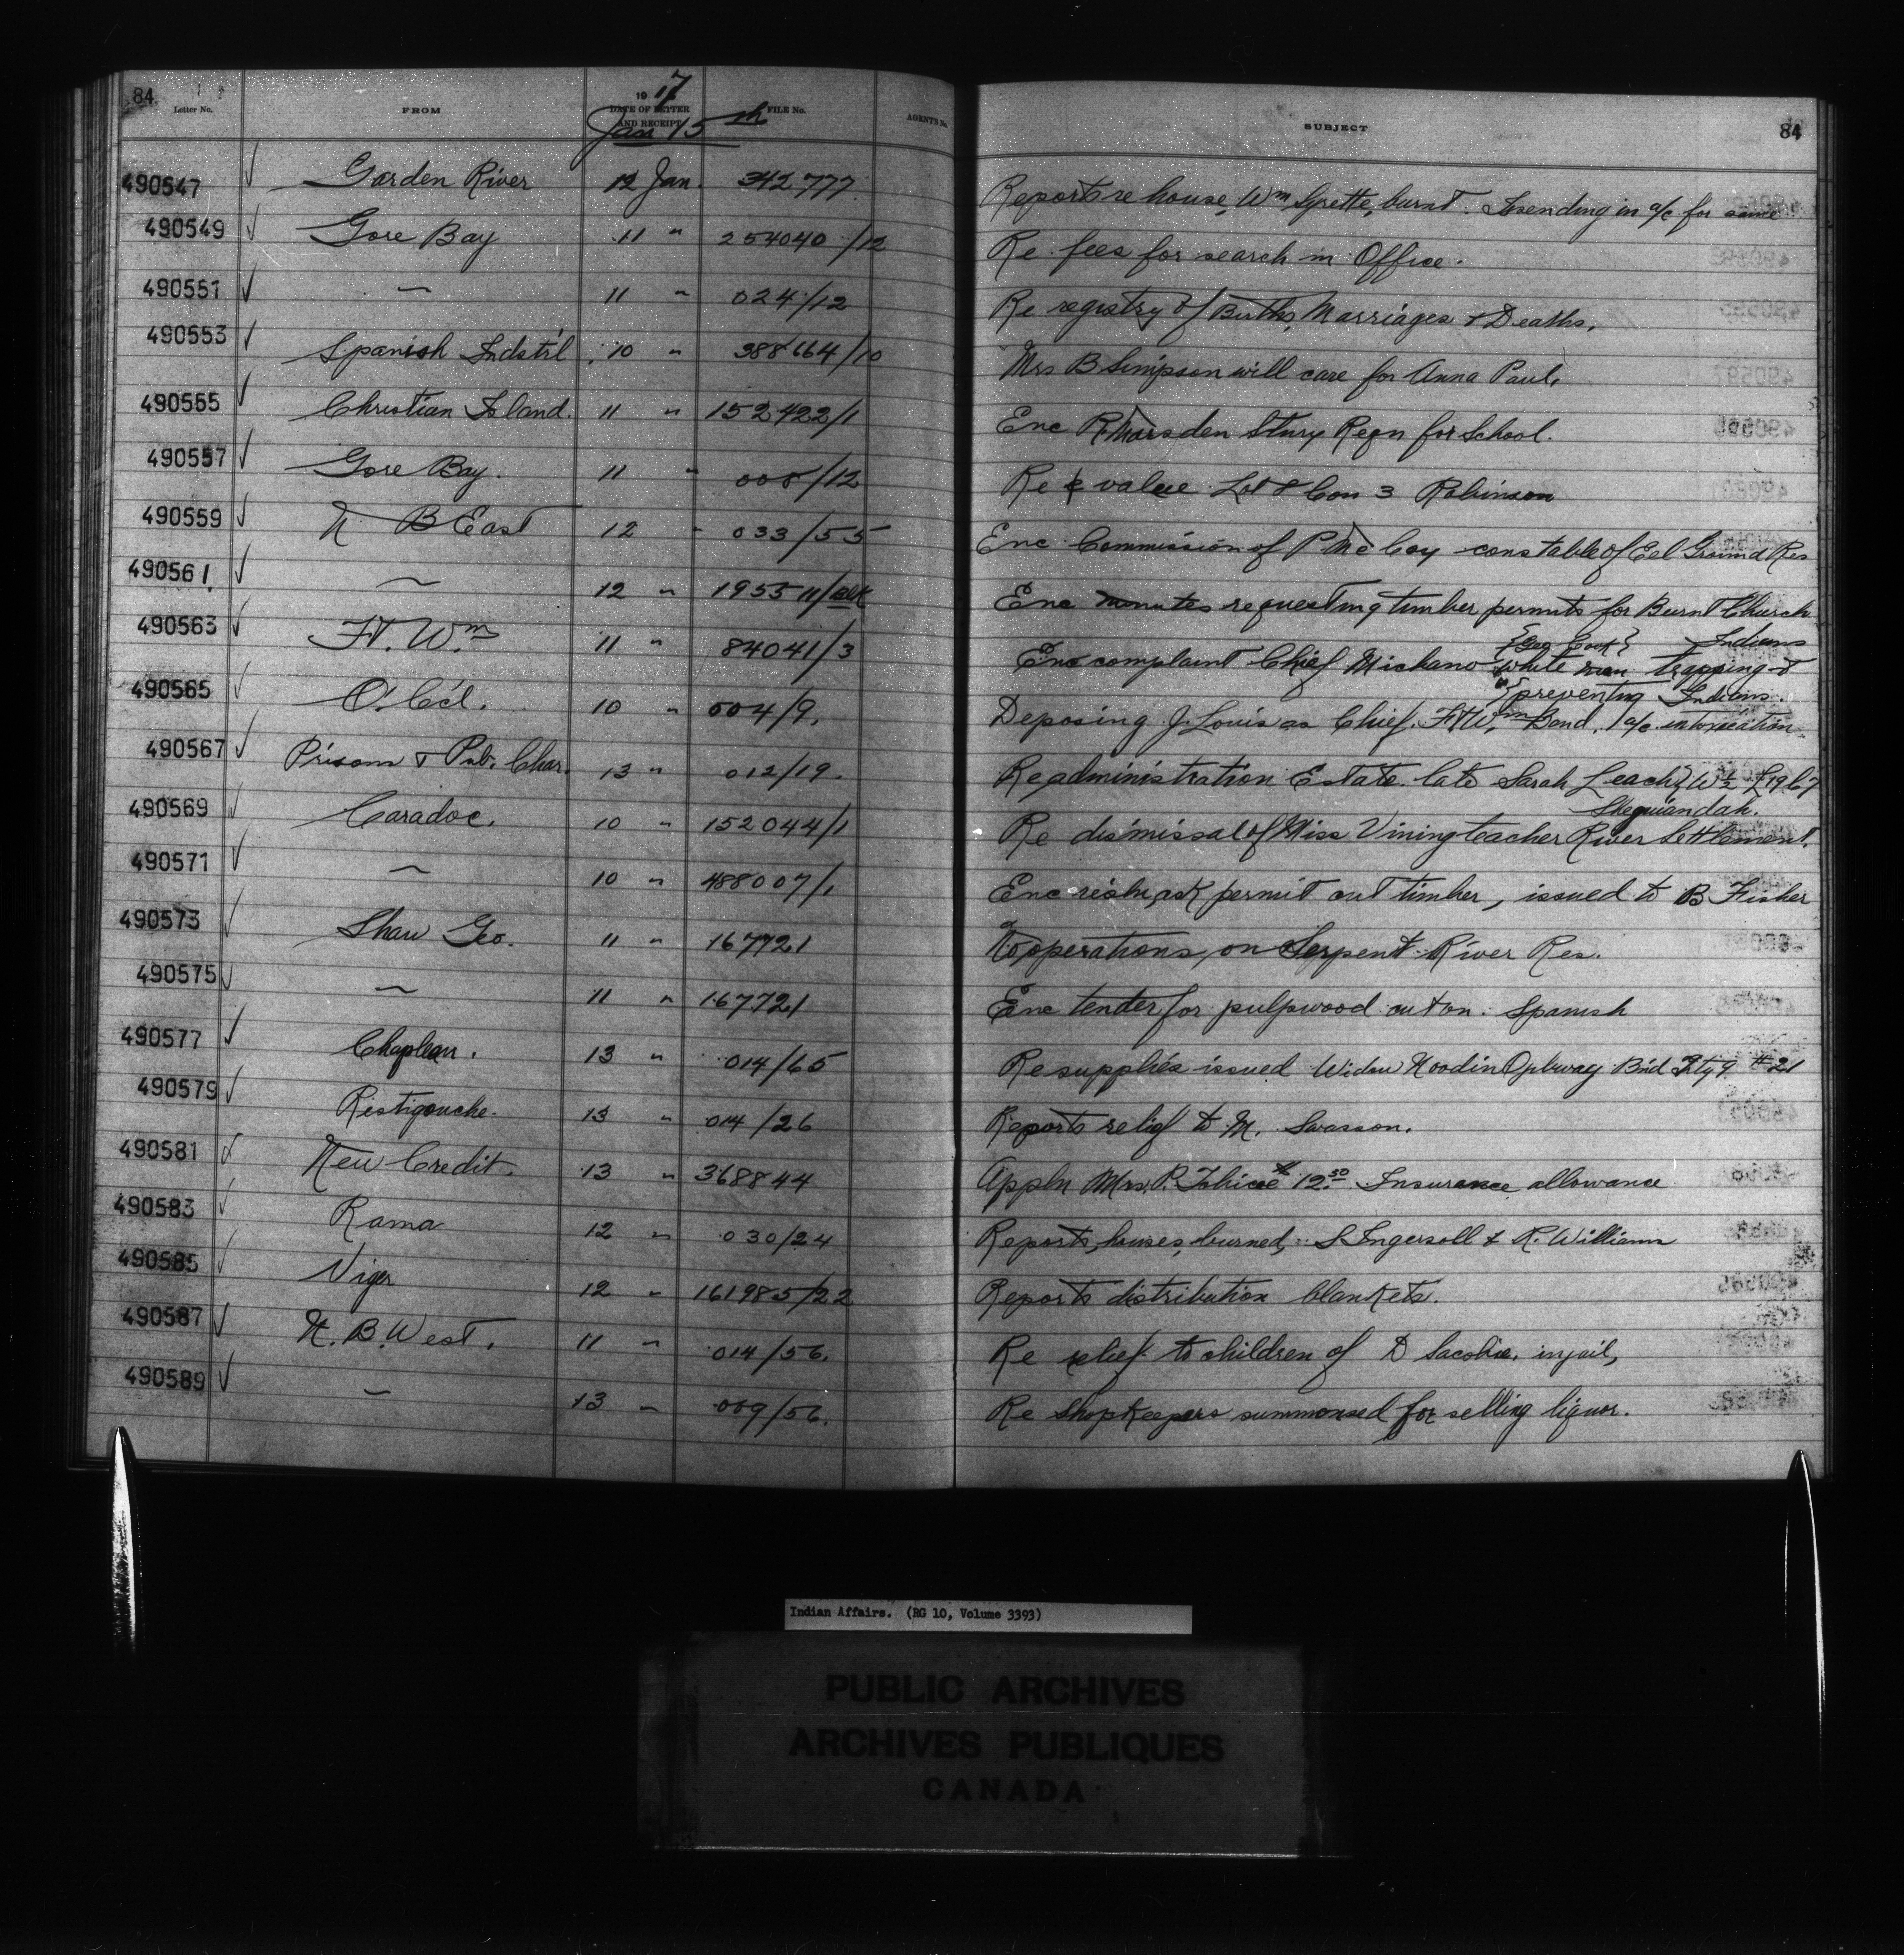 84
Letter No. FROM 1917 DATE OF LETTER AND RECEIPT FILE No. AGENTS No. SUBJECT 84
Jan 15th
490547 ✓ Garden River 12 Jan. 342777 Reports re house, Wm Syrette, burnt. Is sending in a/c for same
490549 ✓ Gore Bay 11 " 254040/12 Re fees for search in Office.
490551 ✓ ~ 11 " 024/12 Re registry of Births, Marriages & Deaths.
490553 ✓ Spanish Indstr'l 10 " 388664/10 Mrs B Simpson will care for Anna Paul.
490555 ✓ Christian Island. 11 " 152422/1 Enc R. Marsden Stury Reqn for School.
490557 ✓ Gore Bay. 11 " 008/12 Re value Lot 8 Con 3 Robinson
490559 ✓ N B East 12 " 033/55 Enc Commission of P McCoy constable of Eel Ground Res
490561. ✓ ~ 12 " 195511/ Enc minutes requesting timber permits for Burnt Church
Indians
490563 ✓ Ft. Wm 11 " 84041/3 Enc complaint Chief Michano {Geo Cook} white man trapping &
{preventing Indians.
490565 ✓ O. C'cl. 10 " 004/9. Deposing J. Louis as Chief. Ft Wm Band. a/c intoxication
490567 ✓ Prisons & Pub. Char. 13 " 012/19. Re administration Estate late Sarah Leach} W½ L19 C7
Sheguiandah.
490569 ✓ Caradoc. 10 " 152044/1 Re dismissal of Miss Vining teacher River Settlement.
490571 ✓ ~ 10 " 488007/1 Enc resln, ask permit cut timber, issued to B Fisher
490573 ✓ Shaw Geo. 11 " 167721 operations, on Serpent River Res.
490575 ✓ ~ 11 " 167721 Enc tender for pulpwood cut on Spanish
490577 ✓ Chapleau. 13 " 014/65 Re supplies issued Widow Noodin Ojibway Bnd Tty 9 #21
490579 ✓ Restigouche. 13 " 014/26 Reports relief to M. Swasson.
490581 New Credit. 13 " 368844 Appln Mrs. P. Tobicoe 12.50 Insurance allowance
490583 ✓ Rama 12 " 030/24 Reports, houses, burned, S Ingersoll & R. Williams
490585 ✓ Viger 12 " 161985/22 Reports distribution blankets.
490587 ✓ N. B. West. 11 " 014/56. Re relief to children of D Sacobie. in jail,
490589 ✓ ~ 13 " 009/56. Re Shopkeepers summonsed for selling liquor.
Indian Affairs. (RG 10, Volume 3393)
PUBLIC ARCHIVES
ARCHIVES PUBLIQUES
CANADA